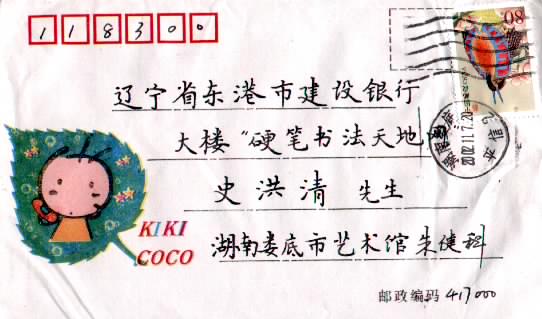 118300
80
辽宁省东港市建设银行
大楼"硬笔书法天地"
2002.11.7.20
史洪清 先生
KIKI
COCO
湖南娄底市艺术馆朱健科
邮政编码 417000